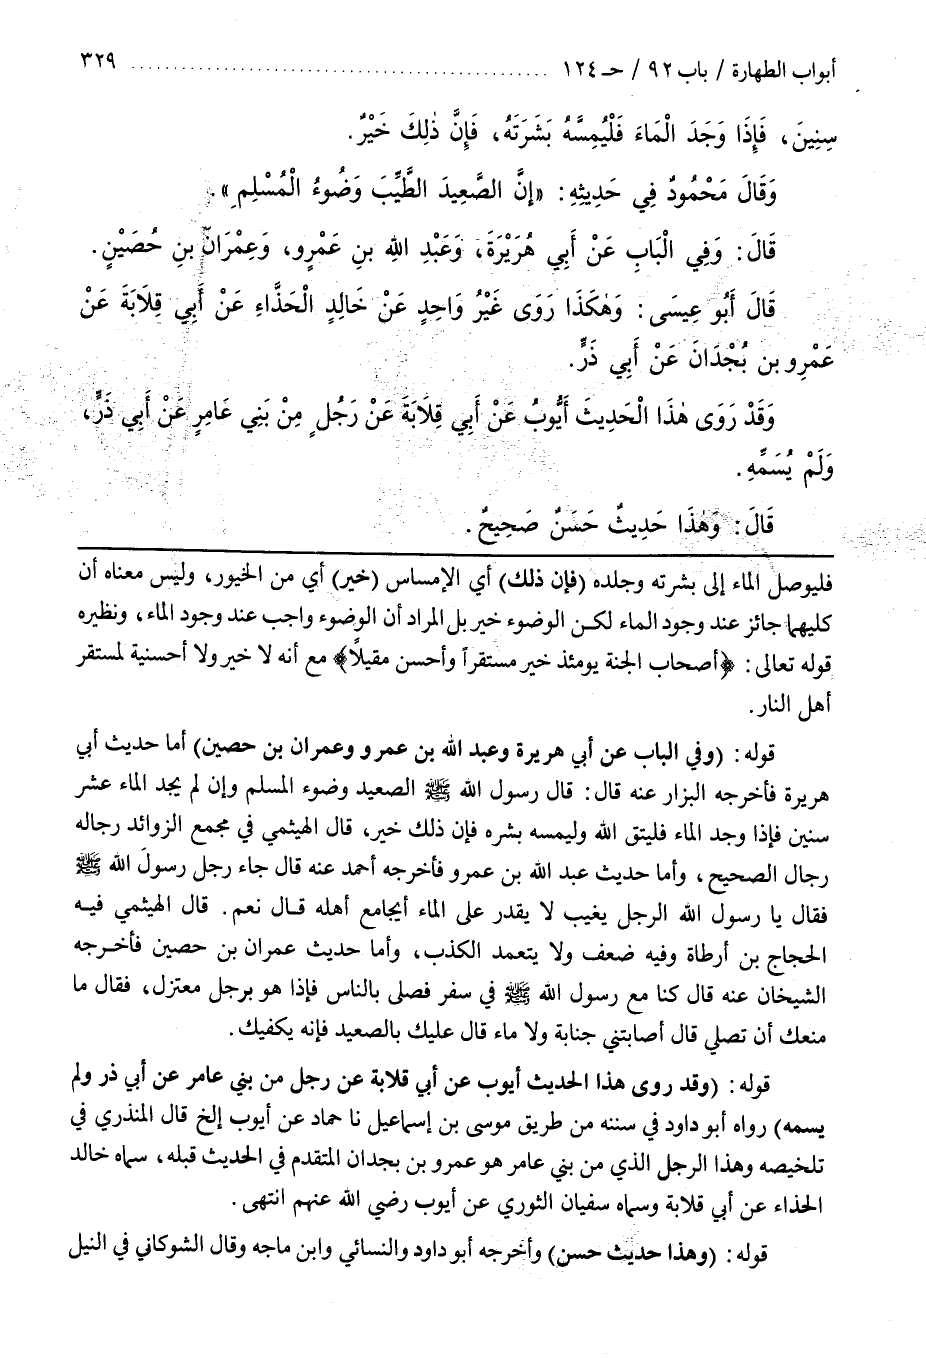 أبواب الطهارة / باب ٩٢ / حـ ١٢٤ ............................................................ ٣٢٩
سِنِينَ، فَإِذَا وَجَدَ الْمَاءَ فَلْيُمِسَّهُ بَشَرَتَهُ، فَإِنَّ ذٰلِكَ خَيْرٌ.
وَقَالَ مَحْمُودٌ فِي حَدِيثِهِ: «إِنَّ الصَّعِيدَ الطَّيِّبَ وَضُوءُ الْمُسْلِمِ».
قَالَ: وَفِي الْبَابِ عَنْ أَبِي هُرَيْرَةَ، وَعَبْدِ اللهِ بنِ عَمْرِو، وَعِمْرَانَ بنِ حُصَيْنٍ.
قَالَ أَبُو عِيسَى: وَهٰكَذَا رَوَى غَيْرُ وَاحِدٍ عَنْ خَالِدٍ الْحَذَّاءِ عَنْ أَبِي قِلَابَةَ عَنْ
عَمْرِو بنِ بُجْدَانَ عَنْ أَبِي ذَرٍّ.
وَقَدْ رَوَى هٰذَا الْحَدِيثَ أَيُّوبُ عَنْ أَبِي قِلَابَةَ عَنْ رَجُلٍ مِنْ بَنِي عَامِرٍ عَنْ أَبِي ذَرٍّ،
وَلَمْ يُسَمِّهِ.
قَالَ: وَهٰذَا حَدِيثٌ حَسَنٌ صَحِيحٌ.
فليوصل الماء إلى بشرته وجلده (فإن ذلك) أي الإمساس (خير) أي من الخيور، وليس معناه أن
كليهما جائز عند وجود الماء لكـن الوضوء خير بل المراد أن الوضوء واجب عند وجود الماء، ونظيره
قوله تعالى: ﴿أصحاب الجنة يومئذ خير مستقراً وأحسن مقيلاً﴾ مع أنه لا خير ولا أحسنية لمستقر
أهل النار.
قوله: (وفي الباب عن أبي هريرة وعبد الله بن عمرو وعمران بن حصين) أما حديث أبي
هريرة فأخرجه البزار عنه قال: قال رسول الله ﷺ الصعيد وضوء المسلم وإن لم يجد الماء عشر
سنين فإذا وجد الماء فليتق الله وليمسه بشره فإن ذلك خير، قال الهيثمي في مجمع الزوائد رجاله
رجال الصحيح، وأما حديث عبد الله بن عمرو فأخرجه أحمد عنه قال جاء رجل رسولَ الله ﷺ
فقال يا رسول الله الرجل يغيب لا يقدر على الماء أيجامع أهله قـال نعم. قال الهيثمي فيـه
الحجاج بن أرطاة وفيه ضعف ولا يتعمد الكذب، وأما حديث عمران بن حصين فأخـرجه
الشيخان عنه قال كنا مع رسول الله ﷺ في سفر فصلى بالناس فإذا هو برجل معتزل، فقال ما
منعك أن تصلي قال أصابتني جنابة ولا ماء قال عليك بالصعيد فإنه يكفيك.
قوله: (وقد روى هذا الحديث أيوب عن أبي قلابة عن رجل من بني عامر عن أبي ذر ولم
يسمه) رواه أبو داود في سننه من طريق موسى بن إسماعيل نا حماد عن أيوب إلخ قال المنذري في
تلخيصه وهذا الرجل الذي من بني عامر هو عمرو بن بجدان المتقدم في الحديث قبله، سماه خالد
الحذاء عن أبي قلابة وسماه سفيان الثوري عن أيوب رضي الله عنهم انتهى.
قوله: (وهذا حديث حسن) وأخرجه أبو داود والنسائي وابن ماجه وقال الشوكاني في النيل